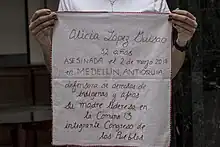 Alicia Lopez Guisao
32 años
ASESINADA el 2 de marzo 2017
en MEDELLIN ANTIOQUIA
defensora de derechos de
indigenas y afros
su madre lideresa en
la Comuna 13
integrante Congreso de
los Pueblos